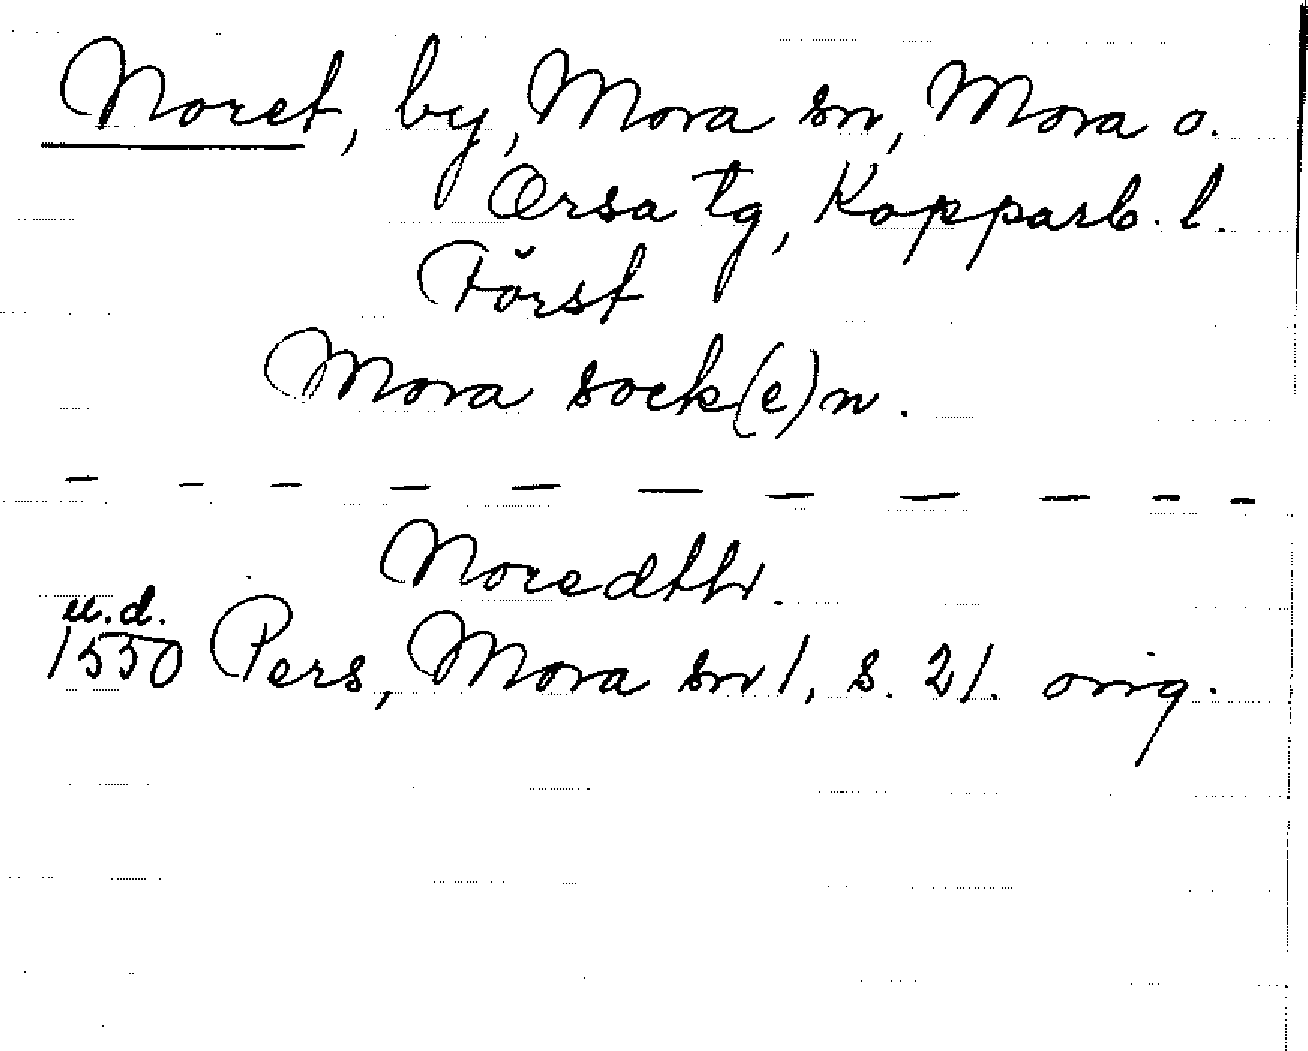 Noret, by, Mora sn, Mora o.
Orsa tg, Kopparb. l.
Först
Mora sock(e)n.
— — — — — — — — — — —
Noredth.
u.d.
1550 Pers, Mora sn 1, s. 21. orig.